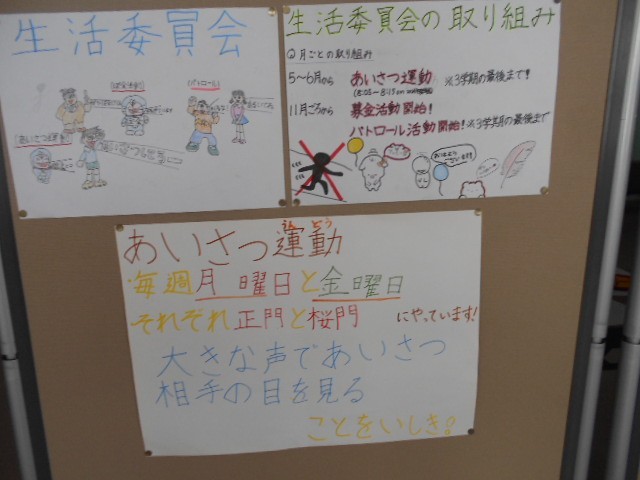 生活委員会
パトロール!
あいさつ運動!
生活委員会の取り組み
月ごとの取り組み
5～6月から あいさつ運動 ※3学期の最後まで!
11月ごろから 募金活動開始!
パトロール活動開始!※3学期の最後まで
おはようございます!!
あいさつ運動
うんどう
・毎週月曜日と金曜日
それぞれ正門と桜門 にやっています!
大きな声であいさつ
相手の目を見る
ことをいしき!